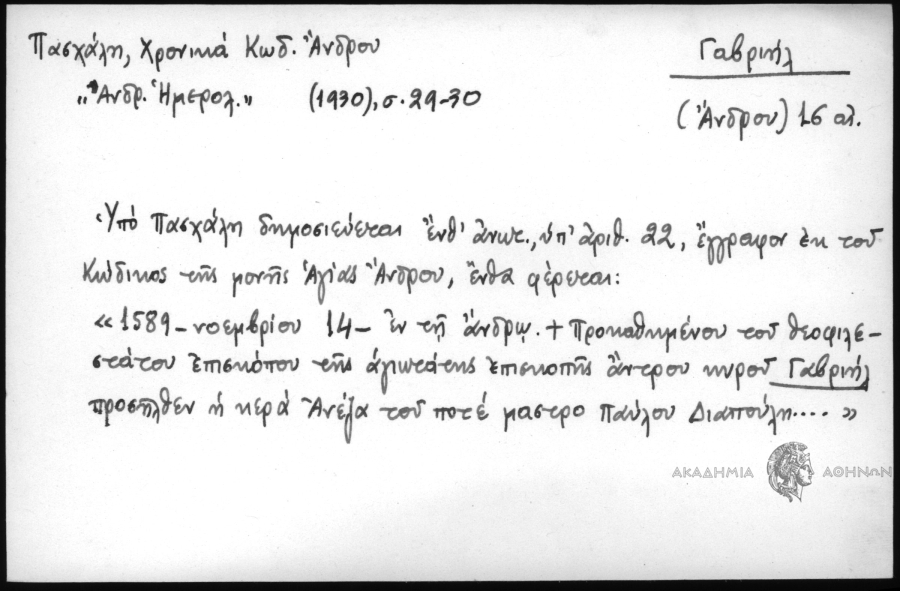 Πασχάλη, Χρονικά Κωδ. Ἄνδρου
„Ἀνδρ. Ἡμερολ.” (1930), σ. 29-30
Γαβριήλ
(Ἄνδρου) 16 αἰ.
Ὑπό Πασχάλη δημοσιεύεται ἔνθ' ἀνωτ., ὑπ' ἀριθ. 22, ἔγγραφον ἐκ τοῦ
Κώδικος τῆς μονῆς Ἁγίας Ἄνδρου, ἔνθα φέρεται:
« 1589 – νοεμβρίου 14 – ἐν τῇ ἄνδρῳ. + Προκαθημένου τοῦ θεοφιλε-
στάτου ἐπισκόπου τῆς ἁγιωτάτης ἐπισκοπῆς ἄντρου κυροῦ Γαβριήλ
προσῆλθεν ἡ κερά Ἀνέζα τοῦ ποτέ μαστρο Παύλου Διαπούλη.... »
ΑΚΑΔΗΜΙΑ ΑΘΗΝΩΝ